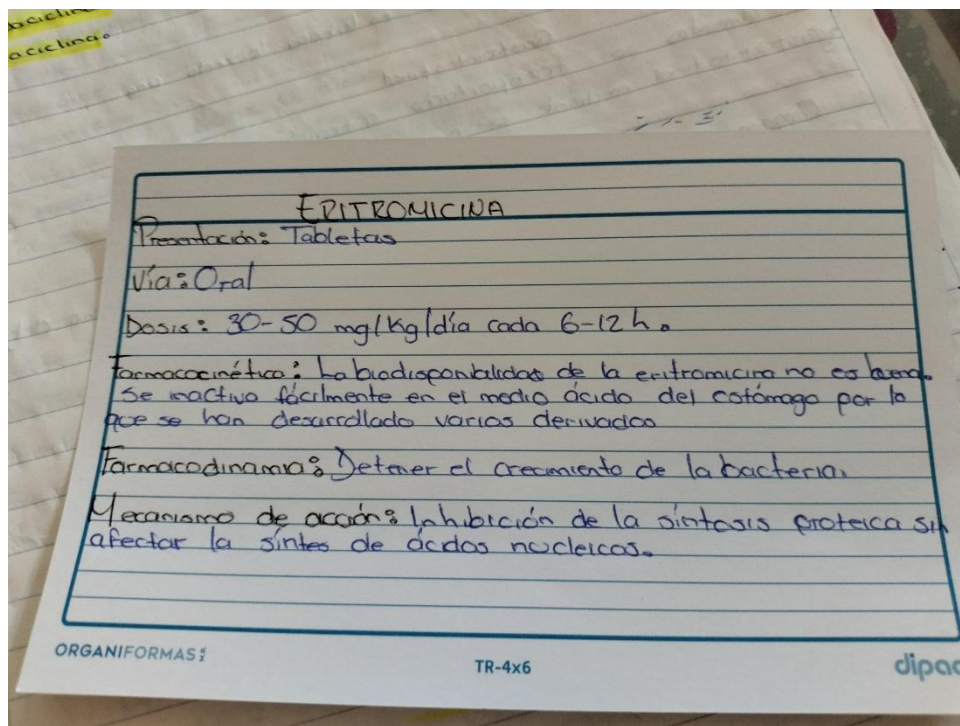 aciclina.
ERITROMICINA
Presentación: Tabletas
Vía: Oral
Dosis: 30-50 mg/Kg/día cada 6-12 h.
Farmacocinética: La biodisponibilidad de la eritromicina no es buena.
Se inactiva fácilmente en el medio ácido del estómago por lo
que se han desarrollado varios derivados
Farmacodinamia: Detener el crecimiento de la bacteria.
Mecanismo de acción: Inhibición de la síntesis proteica sin
afectar la síntes de ácidos nucleicos.
ORGANIFORMAS
TR-4x6
dipac